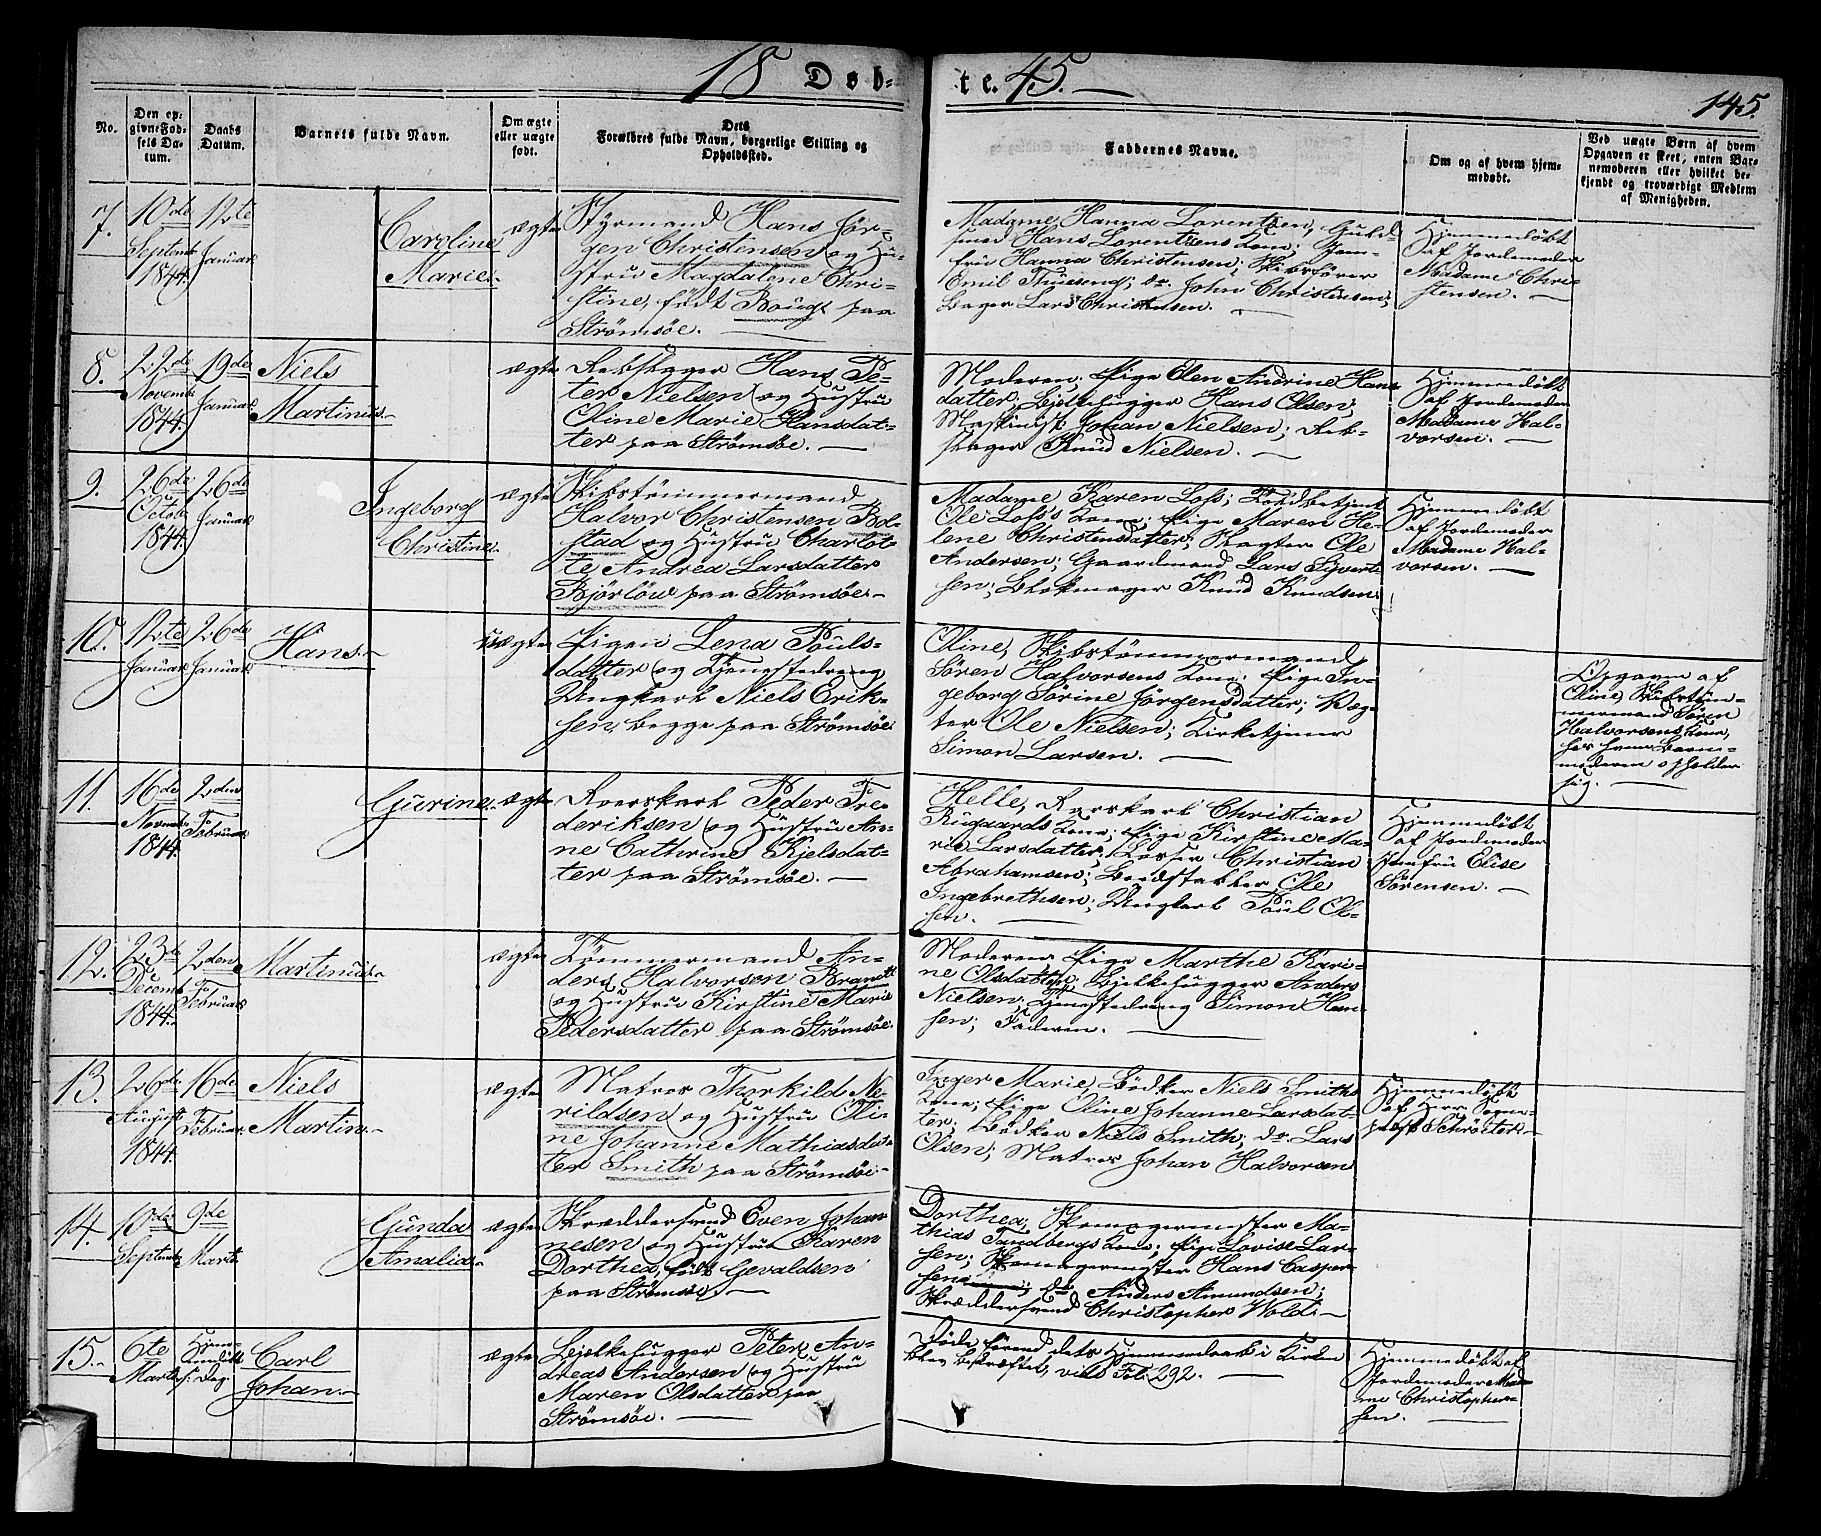 18 Døb-
te. 45.
145.
No.
Den op-
givne Fød-
sels Da-
tum.
Daabs
Datum.
Barnets fulde Navn.
Om ægte
eller uægte
født.
Dets
Forældres fulde Navn, borgerlige Stilling og
Opholdssted.
Faddernes Navne.
Om og af hvem hjem-
medøbt.
Ved uægte Børn af hvem
Opgaven er skeet, enten Bar-
nemoderen eller hvilket be-
kjendt og troværdigt Medlem
af Menigheden.
7.
10de
Septemb.
1844.
12te
Januar
Caroline
Marie.
ægte
Styrmand Hans Jør-
gen Christensen og Hu-
stru Magdalene Chri-
stine, født Bougt paa
Strømsøe.
Madame Hanna Lorentzen, Guld-
smed Hans Lorentzens Kone; Jom-
fru Hanna Christensen; Skibsfører
Emil Thuesend; do. John Christensen;
Bager Lars Christensen.
Hjemmedøbt
af Jordemoder
Madame Chri-
stensen.
8.
22de
Novemb.
1844.
19de
Januar
Niels
Martinus.
ægte
Rebslager Hans Pe-
ter Nielsen og Hustru
Oline Marie Hansdat-
ter paa Strømsøe.
Moderen; Pige Elen Andrine Hans
datter; Bjelkehugger Hans Olsen;
Maskinist Johan Nielsen; Reb-
slager Knud Nielsen.
Hjemmedøbt
af Jordemoder
Madame Hal-
vorsen.
9.
26de
Octob.
1844.
26de
Januar
Ingeborg
Christine.
ægte
Skibstømmermand
Halvor Christensen Bol-
stad og Hustru Charlot-
te Andrea Larsdatter
Bjørlöw paa Strømsøe.
Madame Karen Loss, Toldbetjent
Ole Loss's Kone; Pige Maren He-
lene Christensdatter; Vægter Ole
Andersen; Gaardmand Lars Syvert-
sen; Blokmager Knud Knudsen.
Hjemmedøbt
af Jordemoder
Madame Hal-
vorsen.
10.
12te
Januar
26de
Januar
Hans.
uægte
Pigen Lena Pouls-
datter og Tjenestedreng
Ungkarl Niels Erik-
sen, begge paa Strømsøe
Oline, Skibstømmermand
Søren Halvorsens Kone; Pige In-
geborg Sørine Jørgensdatter; Væg-
ter Ole Nielsen; Kirketjener
Simon Larsen.
Opgaven af
Oline, Skibstøm-
mermand Søren
Halvorsens Kone,
hos hvem Barne-
moderen opholder
sig.
11.
16de
Novemb.
1844.
2den
Februar
Gurine.
ægte
Roerskarl Peder Fre-
deriksen og Hustru An-
ne Cathrine Kjelsdat-
ter paa Strømsøe.
Helle, Roerskarl Christian
Rugaards Kone; Pige Kirstine Ma-
rie Larsdatter; Losser Christian
Abrahamsen; Bordstabler Ole
Ingebrethsen; Ungkarl Poul Ol-
sen.
Hjemmedøbt
af Jordemoder
Jomfru Elise
Sørensen.
12.
23de
Decemb.
1844.
2den
Februar
Martinus.
ægte
Tømmermand An-
ders Halvorsen Branett
og Hustru Kirstine Marie
Pedersdatter paa Strømsøe.
Moderen; Pige Marthe Kari-
ne Olsdatter; Bjelkehugger Anders
Nielsen; Tjenestedreng Simon Han-
sen; Faderen.
13.
26de
August
1844.
16de
Februar
Niels
Martin.
ægte
Matros Thorkild Ne-
rildsen og Hustru Oli-
ne Johanne Mathiasdat-
ter Smith paa Strømsøe.
Inger Marie, Bødker Niels Smiths
Kone; Pige Oline Johanne Larsdat-
ter; Bødker Niels Smith; do. Lars
Olsen; Matros Johan Halvorsen
Hjemmedøbt
af Herr Sogne-
præst Schrøeter.
14.
10de
Septemb.
9de
Marts
Gunda
Amalia.
ægte
Skræddersvend Even Johan-
nesen og Hustru Karen
Dorthea, født Gevaldsen
paa Strømsøe.
Dorthea, Skomagermester Ma-
thias Tandbergs Kone; Pige Lovise Lar-
sen; Skomagermester Hans Casper-
sen; do Anders Amundsen;
Skræddersvend Christopher Wold.
15.
6te
Marts
Hjem-
medøbt
s. Dag.
Carl
Johan.
ægte
Bjelkehugger Peter An-
dreas Andersen og Hustru
Maren Olsdatter paa
Strømsøe.
Døde, førend dets Hjemmedaab i Kirken
blev bekræftet, vide Fol: 292.
Hjemmedøbt af
Jordemoder Mada-
me Christopher-
sen.